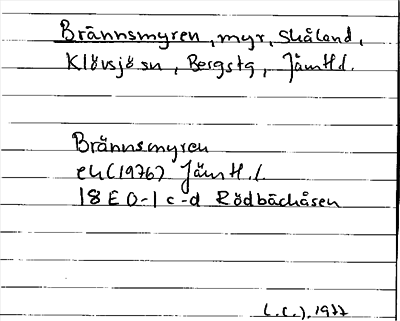 Brännsmyren, myr, Skåland,
Klövsjö sn, Bergstg, Jämtl.
Brännsmyren
ek (1976) Jämtl.
18 E 0-1 c-d Rödbäckåsen
(.c.), 1977